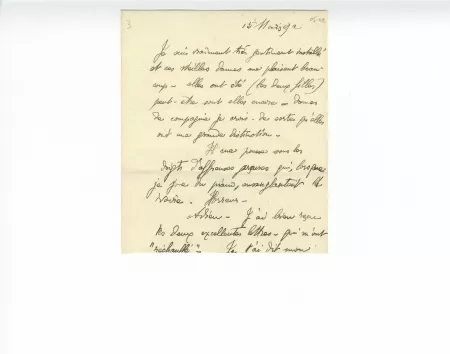 3
15 Mars 92
Je suis vraiment très gentiment installé
et ces vieilles dames me plaisent beau-
coup - elles ont été (les deux filles)
peut-être sont elles encore - dames
de compagnie je crois - de sorte qu'elles
ont une grande distinction -
Il me pousse sous les
doigts d'affreuses qui, lorsque
je joue du piano, ensanglantent le
clavier - Horreur -
Adieu - J'ai bien reçu
tes deux excellentes lettres - qui m'ont
"réchauffé" - Je t'ai dit mon